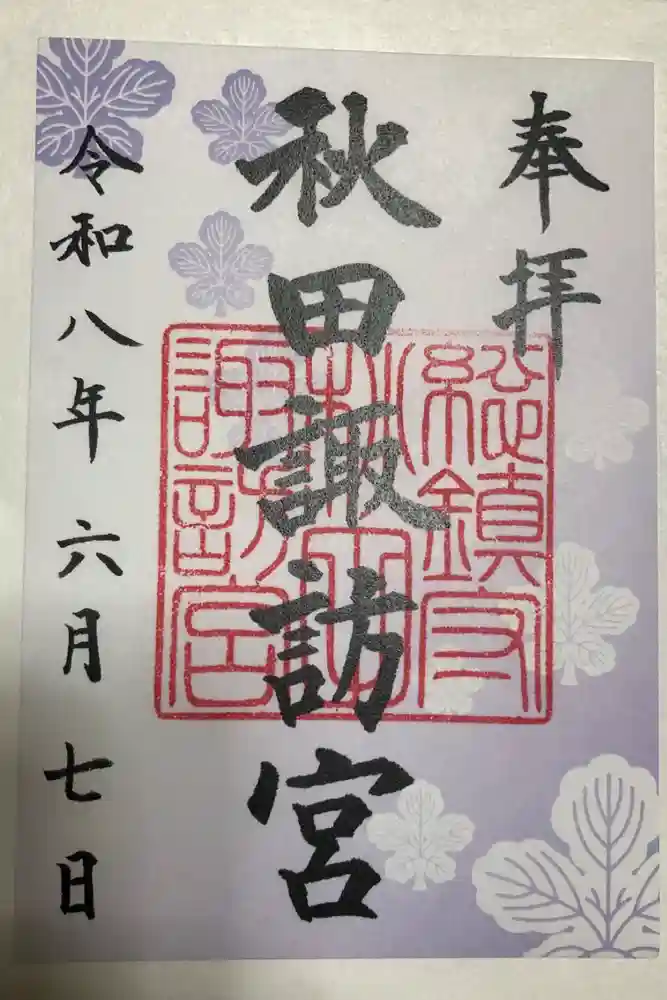 奉拝
秋田諏訪宮
総鎮守
秋田
諏訪宮
令和八年六月七日